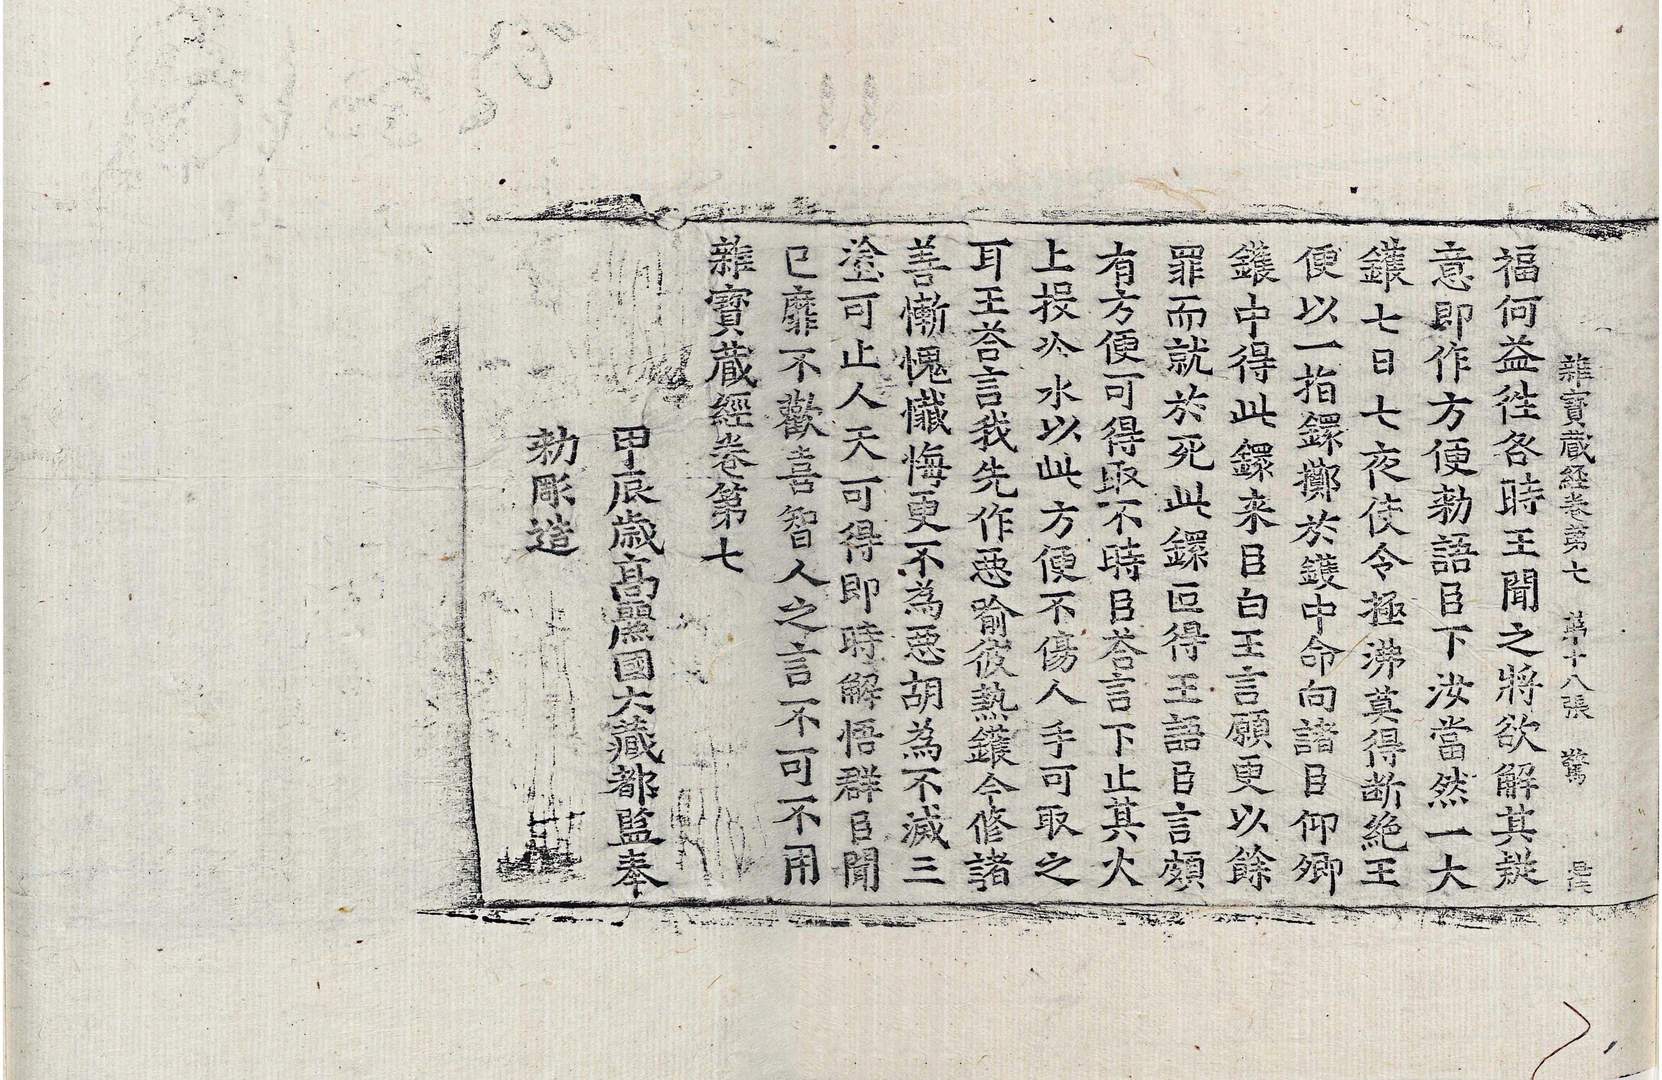 雜寶藏經卷第七 第十八張 驚
福何益徃各時王聞之將欲解其疑
意即作方便勑語臣下汝當然一大
鑊七日七夜使令極沸莫得断絶王
便以一指鐶擲於鑊中命向諸臣仰卿
鑊中得此鐶来臣白王言願更以餘
罪而就於死此鐶叵得王語臣言頗
有方便可得取不時臣荅言下止其火
上投冷水以此方便不傷人手可取之
耳王荅言我先作惡喻彼熱鑊今修諸
善慚愧懴悔更不為惡胡為不滅三
塗可止人天可得即時解悟群臣聞
已靡不歡喜智人之言不可不用
雜寶藏經卷第七
甲辰歲高麗國大藏都監奉
勑彫造